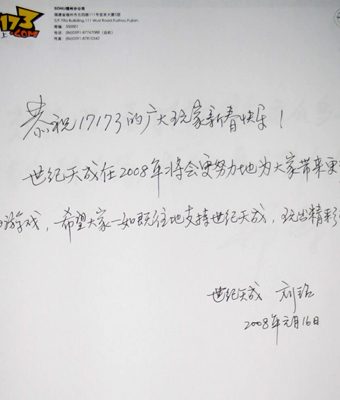 17173
.com
SOHU福州分公司
恭祝17173的广大玩家新春快乐！
世纪天成在2008年将会更努力地为大家带来更
游戏，希望大家一如既往地支持世纪天成，玩出精彩
世纪天成 刘铭
2008年元月16日